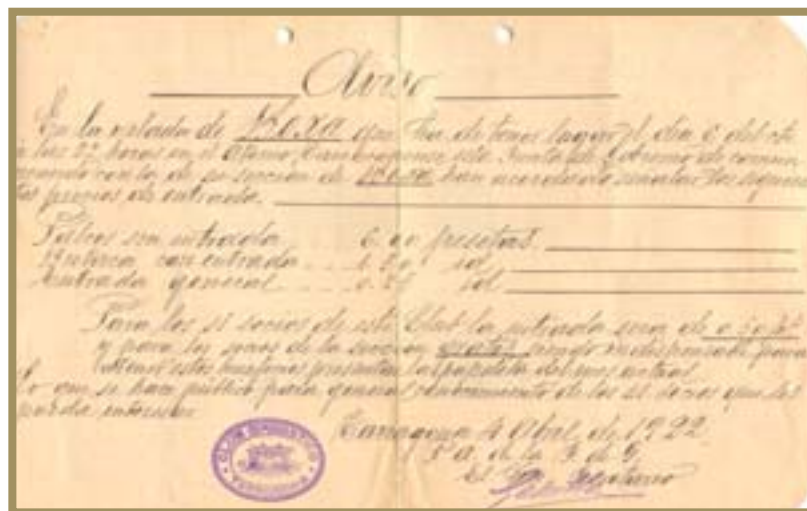 Aviso
En la velada de Boxa que ha de tener lugar el día 6 del cte
a las 22 horas en el Ateneo Tarraconense esta Junta de Gobierno de comun
acuerdo con la de su sección de Boxa han acordado señalar los siguien
tes precios de entrada.
Palcos sin entrada 6.00 pesetas
Butaca con entrada 1.50 id
Entrada general 0. id
Para los Sr socios de este Club la entrada sera de
y para los socios de la sección gratis, siendo indispensable para
obtener estos presentar
Lo que se hace público para general conocimiento de los Sr. Socios que les
pueda interesar.
Tarragona 4 Abril de 1922.
P. A. de la J. de G.
El Secretario
CLUB GIMNASTICO
TARRAGONA